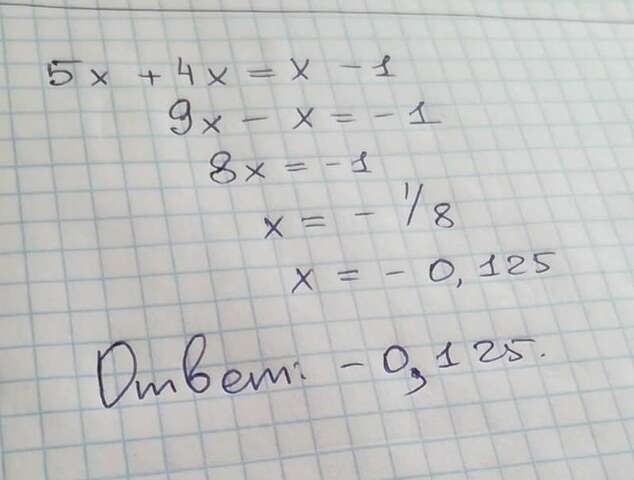 5x + 4x = x - 1
9x - x = -1
8x = -1
x = - 1/8
x = - 0,125
Ответ: - 0,125.